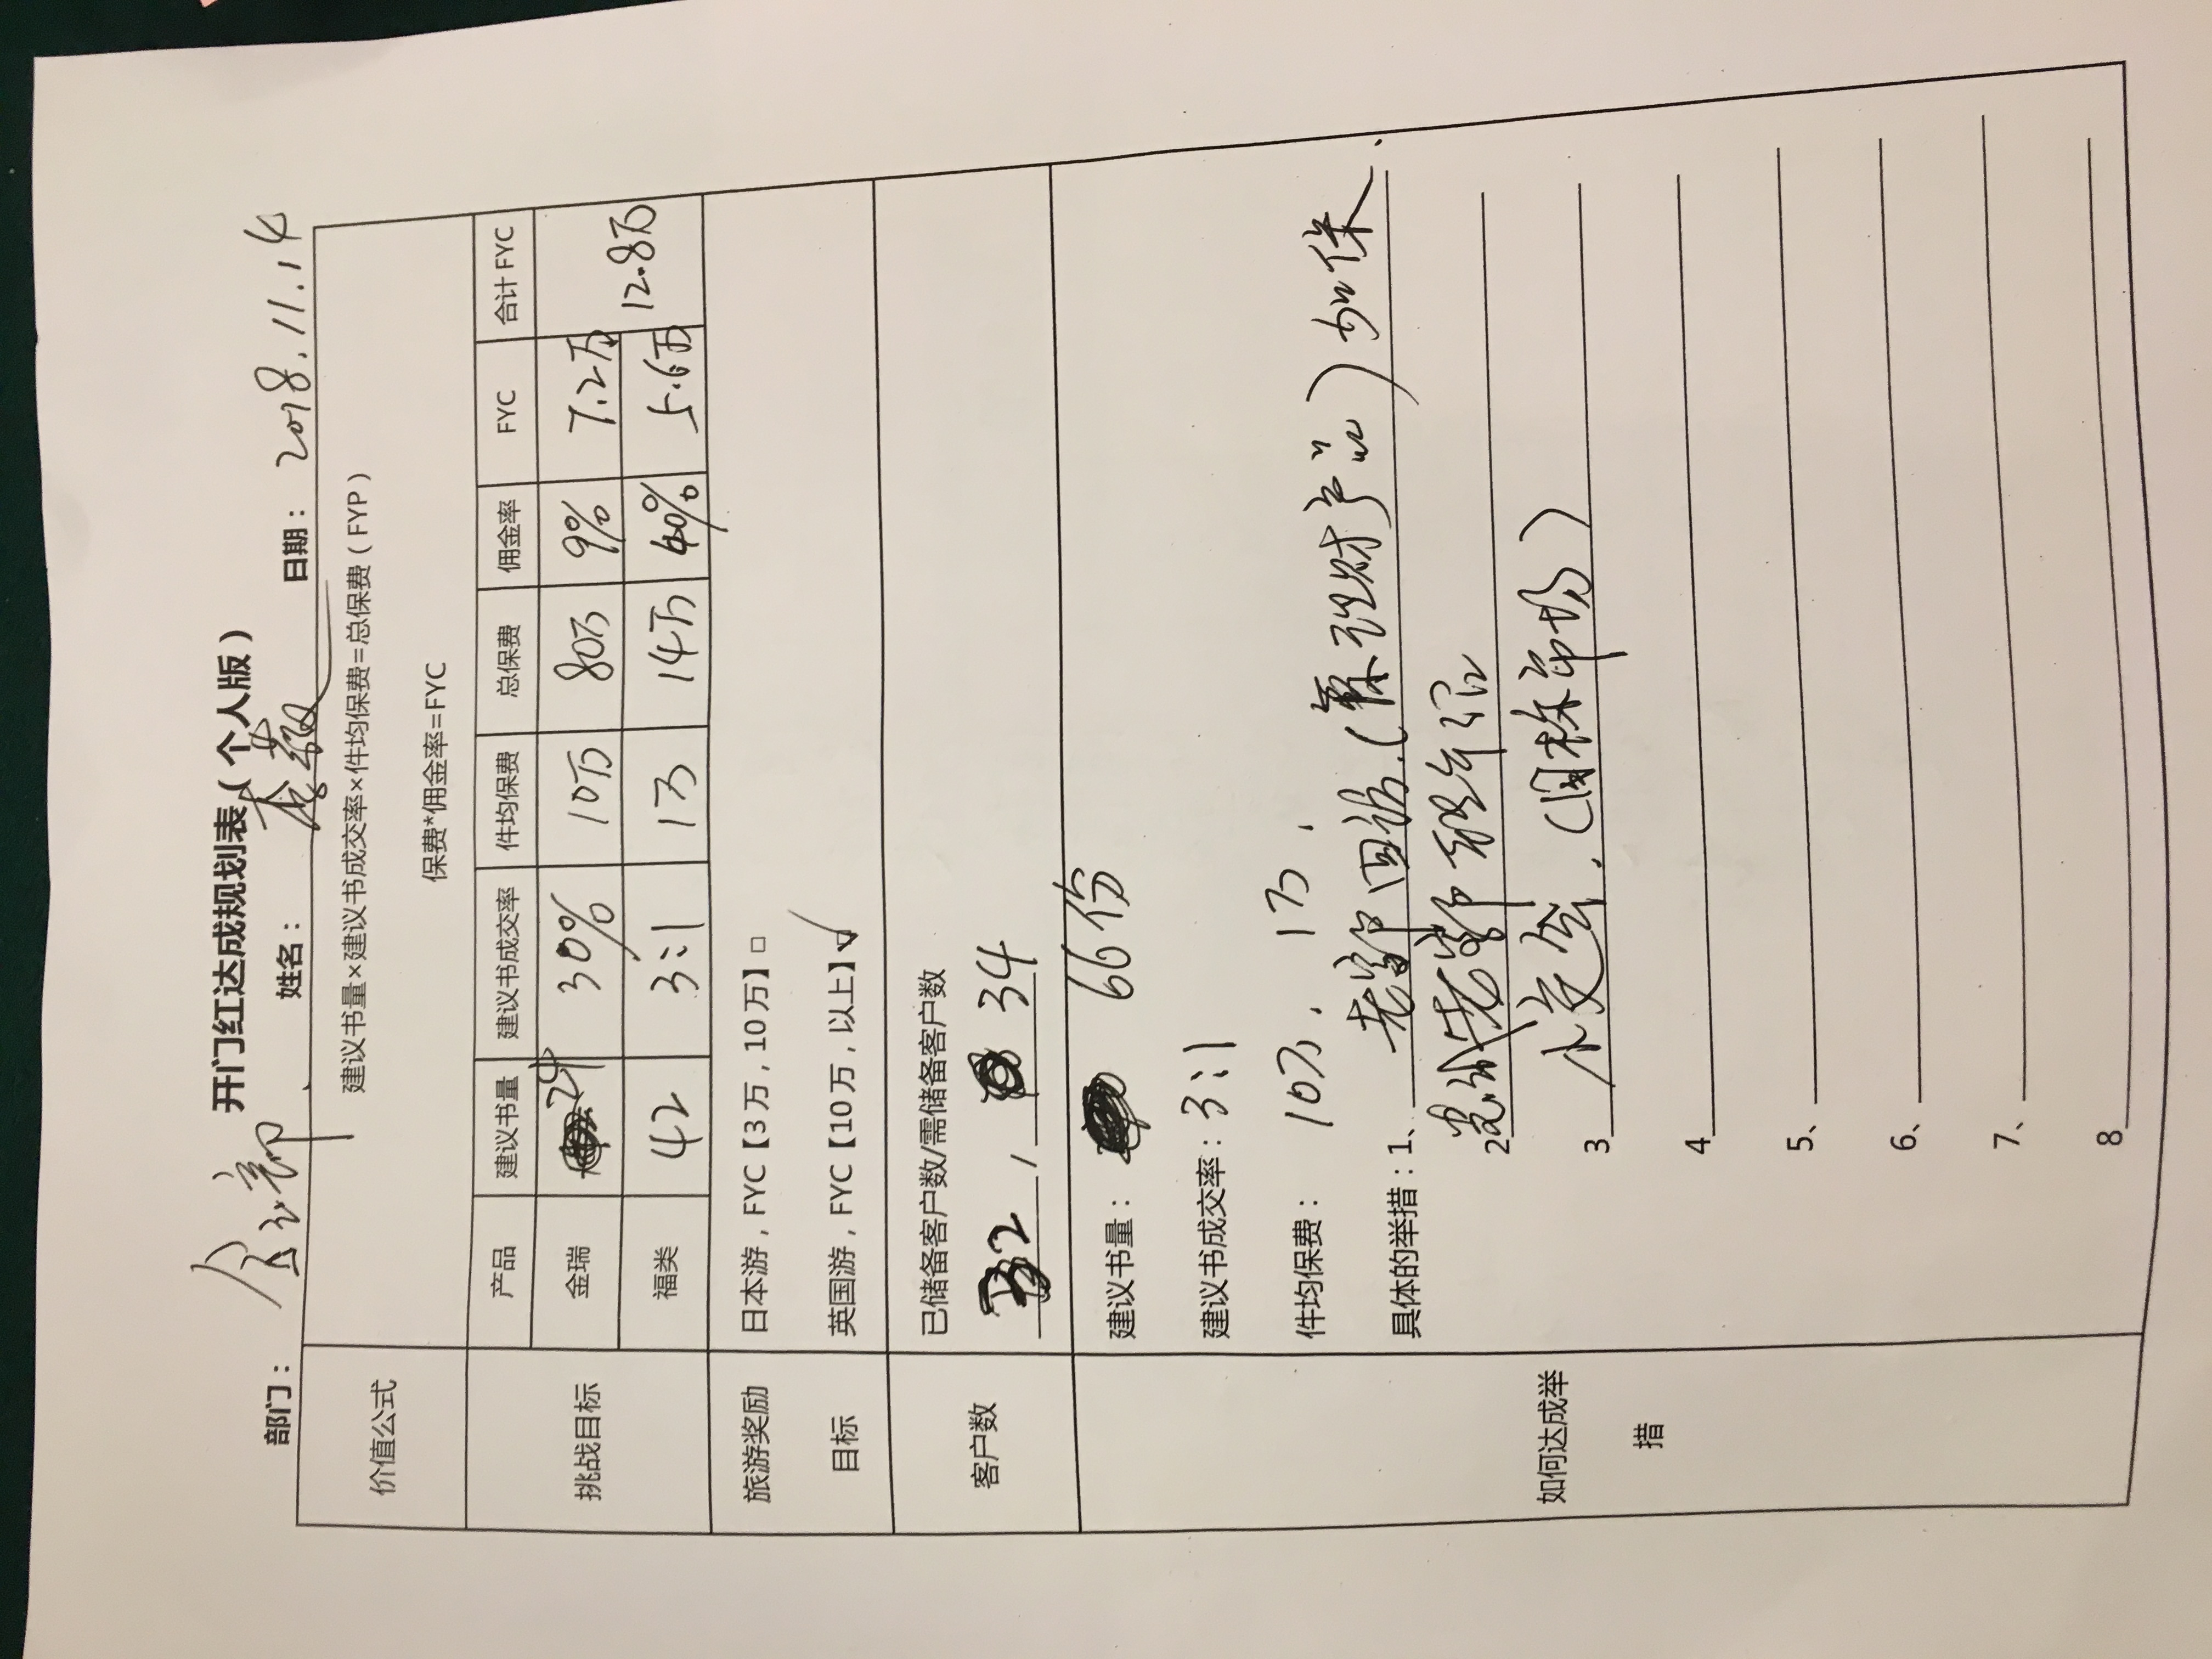 开门红达成规划表(个人版)
部门: 姓名: 日期: 2018.11.14
价值公式
建议书量×建议书成交率×件均保费=总保费(FYP)
保费*佣金率=FYC
挑战目标
产品 建议书量 建议书成交率 件均保费 总保费 佣金率 FYC 合计 FYC
金瑞 24 30% 10万 80万 9% 7.2万 12.8万
福类 42 3:1 1万 14万 40% 5.6万
旅游奖励
目标
日本游,FYC【3万,10万】□
英国游,FYC【10万,以上】☑
客户数
已储备客户数/需储备客户数
32 / 34
如何达成举
措
建议书量: 66份
建议书成交率:3:1
件均保费: 10万, 1万,
具体的举措:1、老客户回访.(理财产品)加保.
2 老客户
3 小交会.(目标市场)
4
5、
6、
7、
8